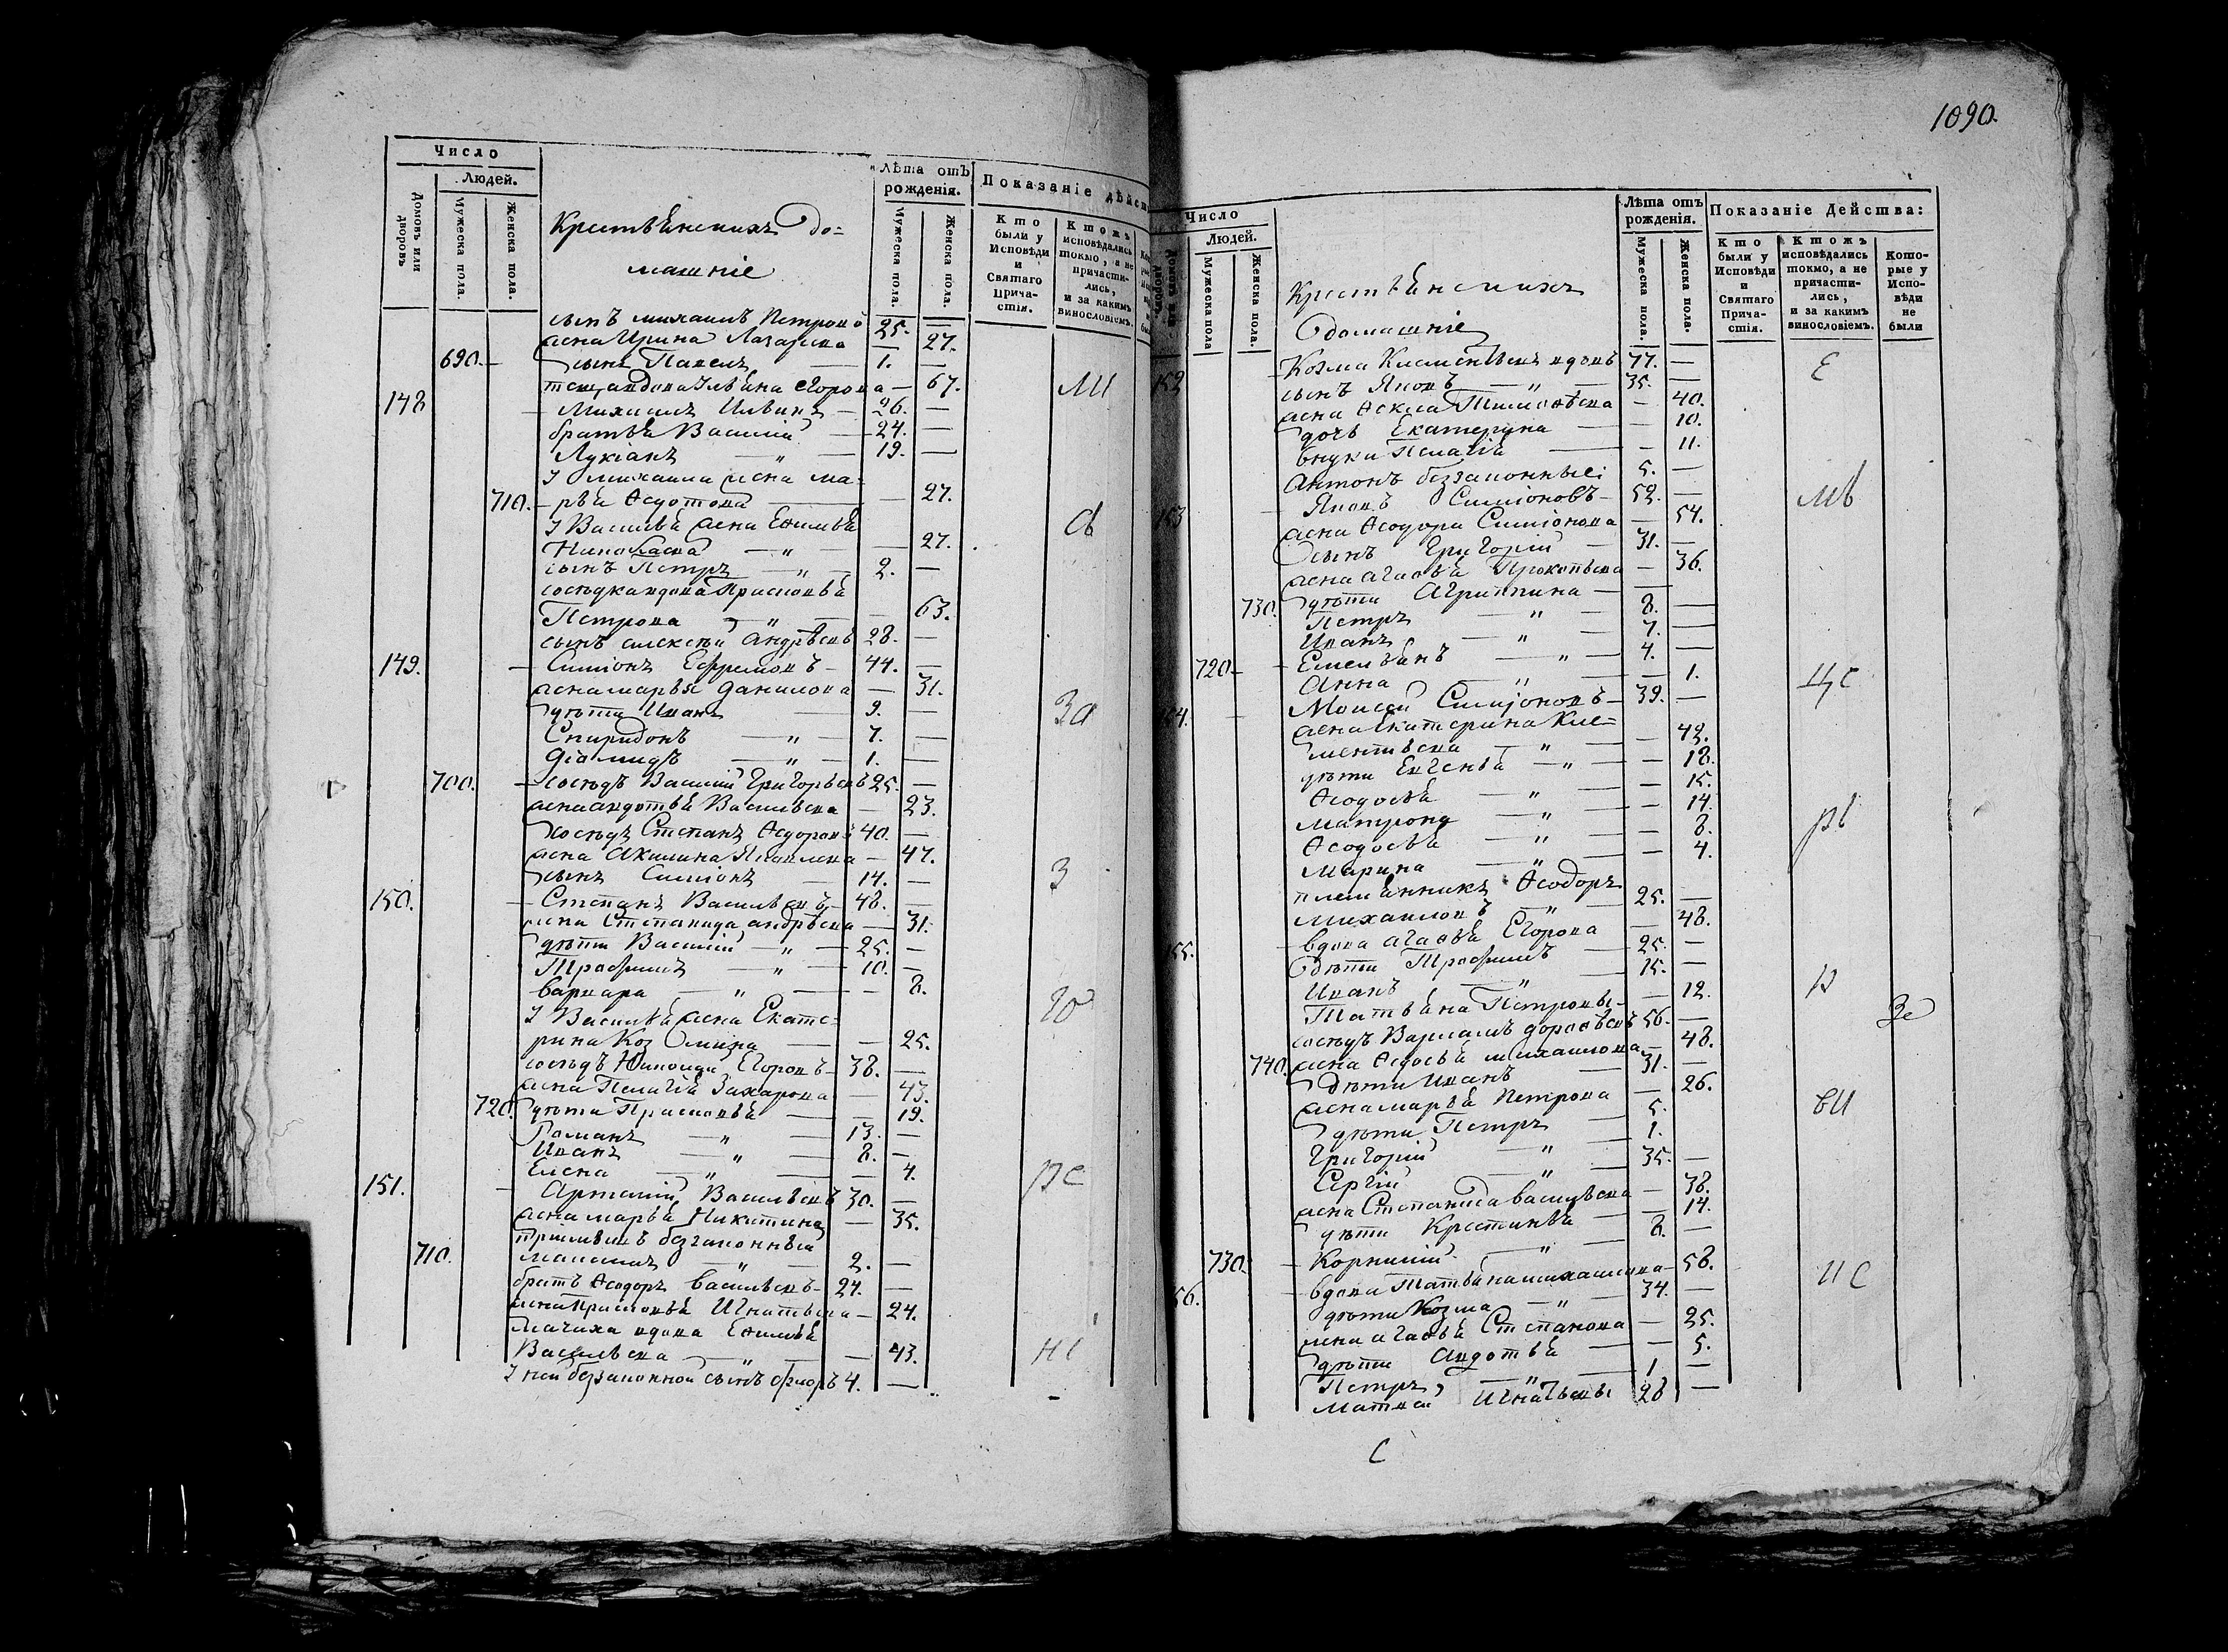 Число
Людей.
Домовъ или дворовъ
Мужеска пола.
Женска пола.
Крестьянскихъ до=
машніе
Лѣта отъ рожденія.
Мужеска пола.
Женска пола.
Показаніе дѣйст
Кто были у Исповѣди и Святаго Прича-стія.
Ктожъ исповѣдались токмо, а не причасти-лись, и за какимъ винословіемъ.
сынъ михаилъ Петровъ 25. —
жена Ирина Лазарева — 27.
690. — сынъ Павелъ — 1. —
вдова Ульяна Егорова — 67.
148 — Михаилъ — 26. —
братья Василій — 24. —
Лукіанъ — „ — 19. —
У михаила жена ма=
710. — рья Федотова — 27.
У Василья жена Емилья
— „ — — 27.
сынъ Петръ — „ — 2. —
сосѣдка вдова Прасковья
Петрова — „ — — 63.
сынъ алексѣй Андрѣевъ 28. —
149. — Симіонъ Ефремовъ — 44. —
жена марья Данилова — 31.
дѣти Иванъ — 9. —
Спиридонъ — „ — 7. —
Діомидъ — „ — 1. —
700. — сосѣдъ Василій Григорьевъ 25. —
жена авдотья Васильева — 23.
сосѣдъ Степанъ Федоровъ 40. —
жена Акилина — 47.
сынъ Симіонъ — 14. —
150. — Степанъ Васильевъ — 48. —
жена Степанида андрѣева — 31.
дѣти Василій — „ — 25. —
Трофимъ — „ — 10. —
варвара — „ — — 8.
У Василья жена Екате=
рина Козмина — — 25.
сосѣдъ Егоровъ — 38. —
жена Пелагія Захарова — 43.
720. дѣти Прасковья — — 19.
Романъ — „ — 13. —
Иванъ — „ — 8. —
Елена — „ — — 4.
151. — Артемій Васильевъ 30. —
жена марья Никитина — 35.
пріемышъ беззаконный
710. — „ — 2. —
братъ Феодоръ васильевъ — 24. —
жена прасковья Игнатьева — 24.
мачиха вдова Емилья
Васильева — „ — — 43.
У ней беззаконной сынъ 4. —
1090.
Число
Людей.
Мужеска пола
Женска пола.
Крестьянскихъ
домашніе
Лѣта отъ рожденія.
Мужеска пола.
Женска пола.
Показаніе Действа:
Кто были у Исповѣди и Святаго Прича-стія.
Ктожъ исповѣдались токмо, а не причасти-лись, и за какимъ винословіемъ.
Кото-рые у Испо-вѣди не были
Козма Клементьевъ вдовъ 77. —
сынъ Яковъ — „ — 35. —
жена Фекла Тимофѣева — 40.
дочь Екатерина — — 10.
внуки Пелагія — — 11.
Антонъ беззаконные 5. —
Яковъ Симіоновъ — 52. —
жена Феодора Симіонова — 54.
сынъ Григорій — 31. —
жена агафья Прокопьева — 36.
730. дѣти Агриппина —
Петръ — „ — 8. —
Иванъ — „ — 7. —
720. — Емельянъ — „ — 4. —
Анна — „ — — 1.
Моисей Симіоновъ — 39. —
жена Екатерина Кле=
ментьева — „ — — 42.
дѣти Евгенья — „ — — 18.
Феодосья — „ — — 15.
матрона — „ — — 14.
Феодосья — „ — — 8.
Марина — „ — — 4.
племянникъ Феодоръ
Михаиловъ — „ — 25. —
вдова агафья Егорова — 48.
дѣти Трофимъ — 25. —
Иванъ — „ — 15. —
Татьяна Петровы — — 12.
сосѣдъ Варламъ дорофѣевъ 56. —
740. жена Федосья михаилова — 48.
дѣти Иванъ — 31. —
жена марья Петрова — 26.
дѣти Петръ — 5. —
Григорій — „ — 1. —
Сергій — „ — 35. —
жена Степанида васильева — 38.
дѣти Крестинья — — 14.
730. — Корнилій — „ — 8. —
вдова Татьяна михаилова — 58.
дѣти Козма — „ — 34. —
жена агафья Степанова — 25.
дѣти Авдотья — — 5.
Петръ — „ — 1. —
матвей Игнатьевы 28 —
С